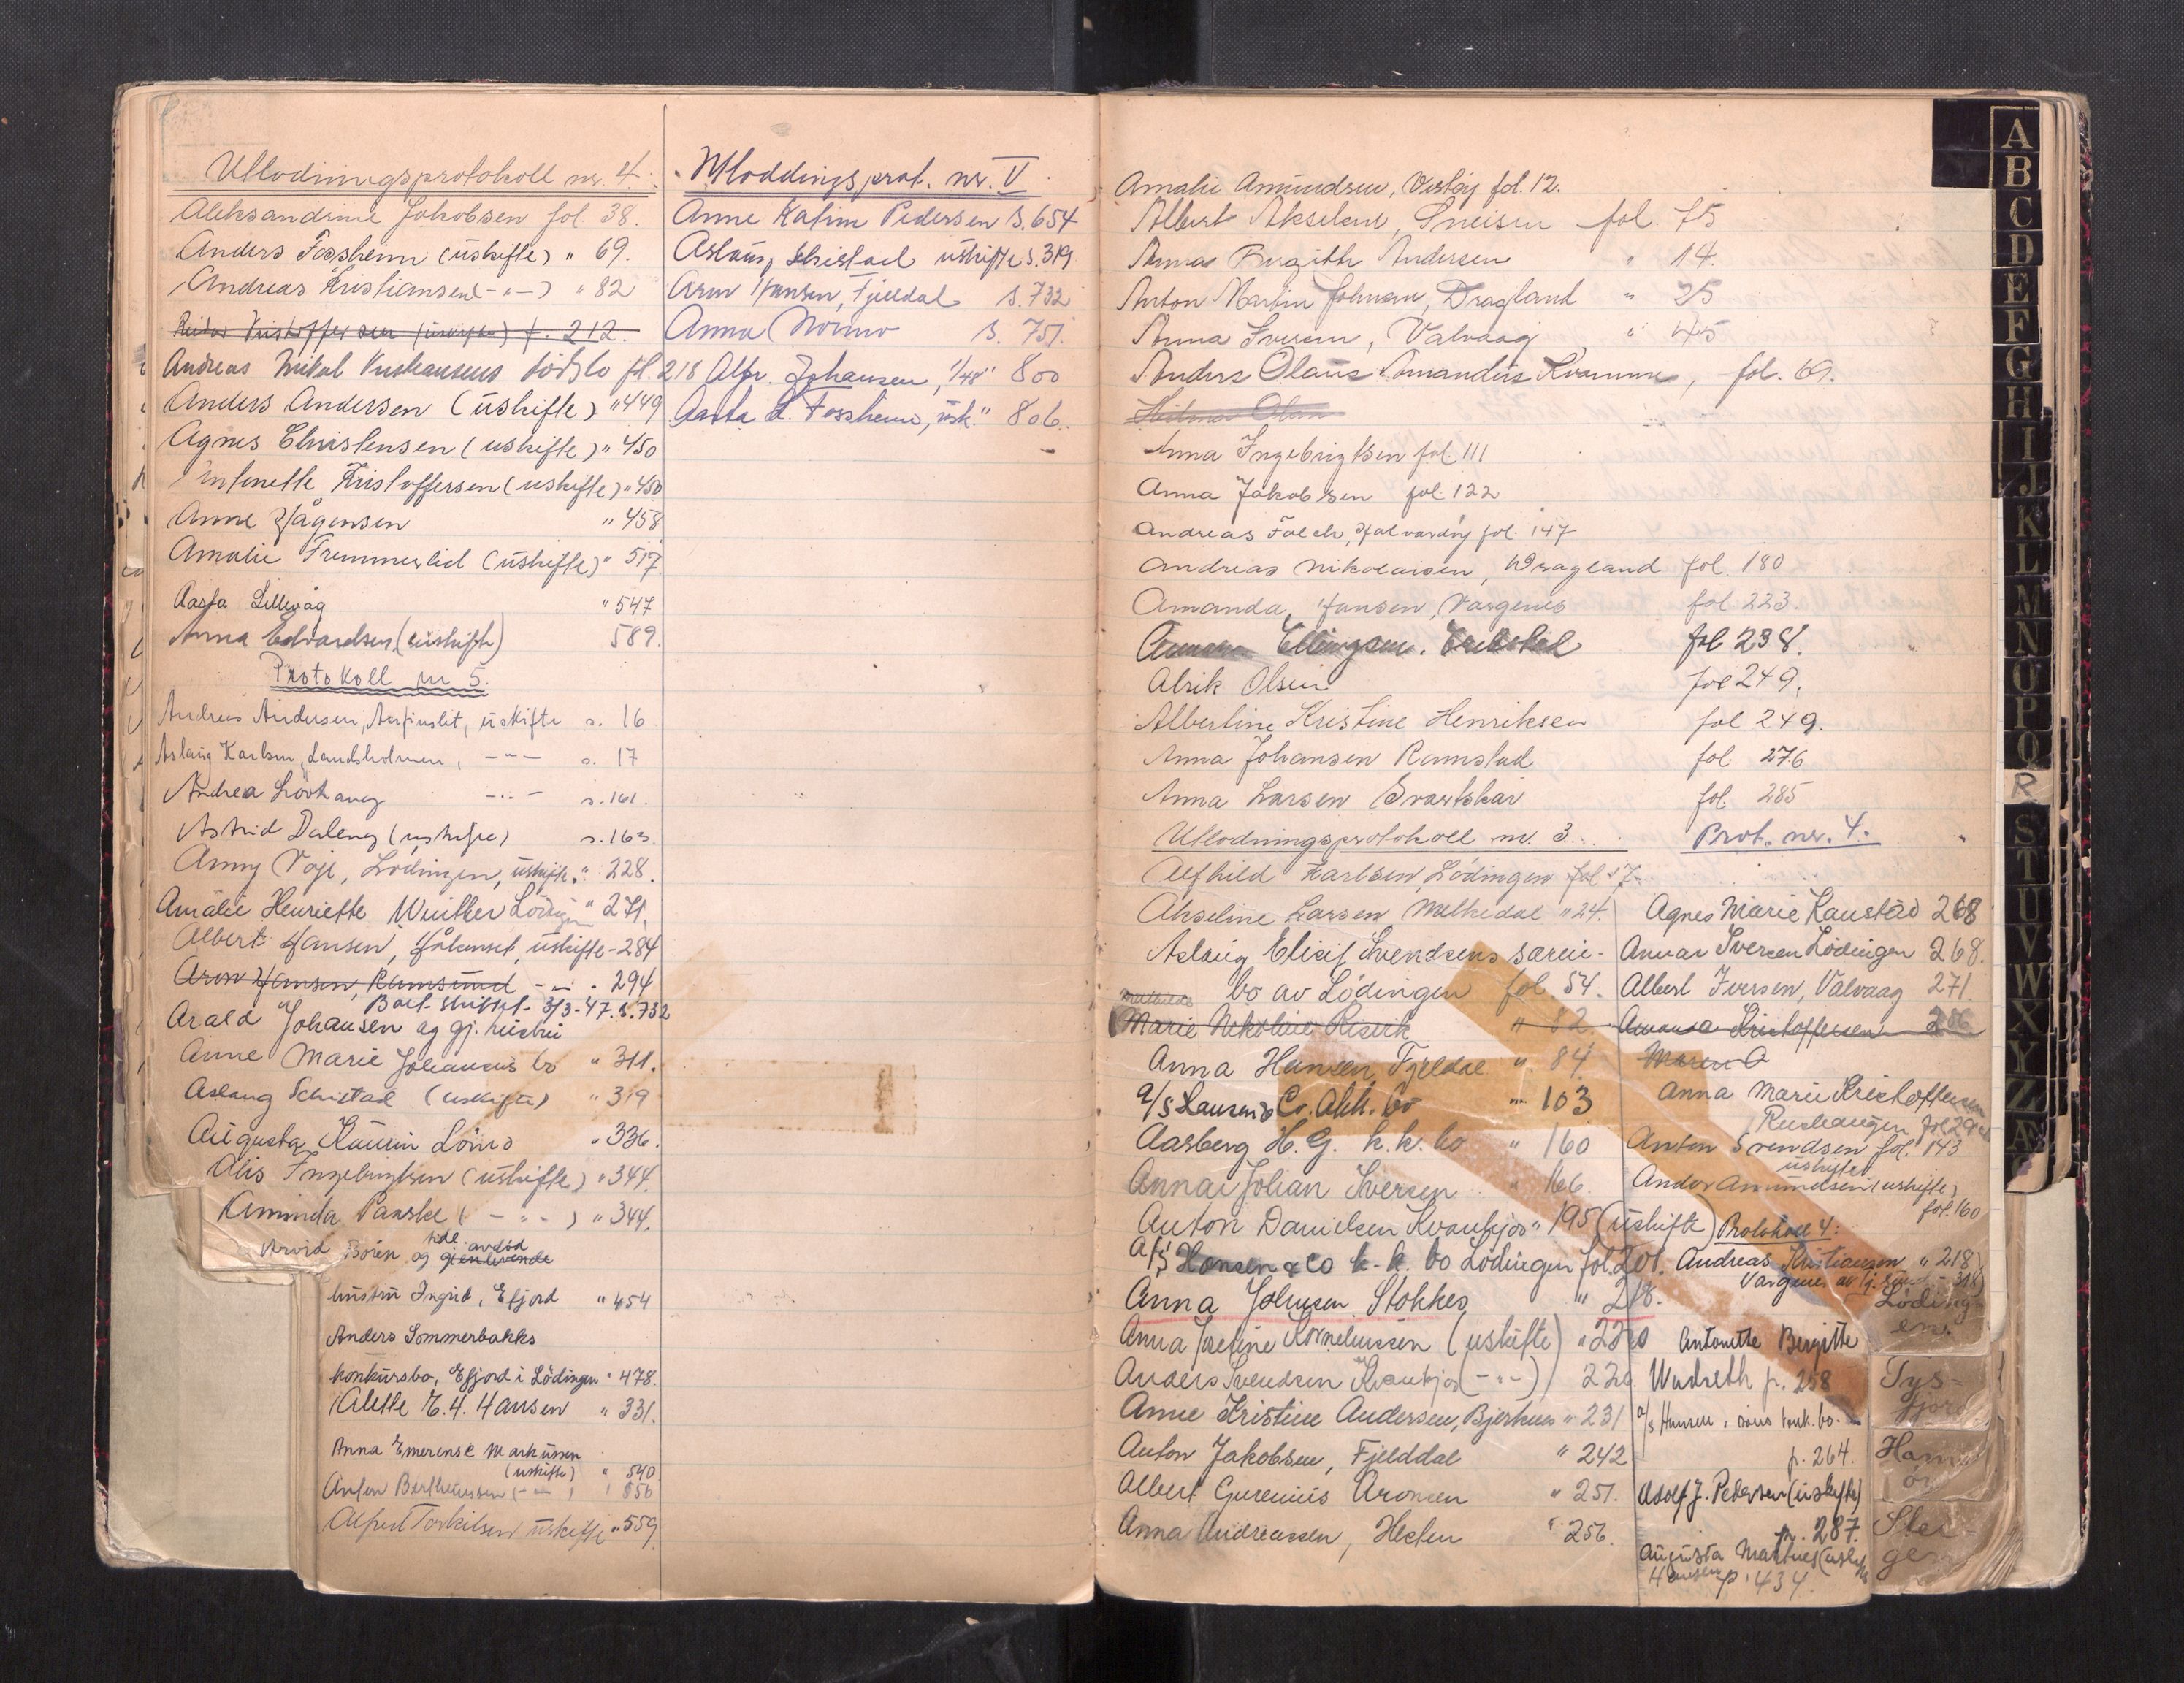 Utlodningsprotokoll nr. 4.
Aleksandrine Jakobsen fol. 38.
Anders Fossheim (uskifte) " 69.
Andreas Kristiansen (-"-) " 82
Kristoffersen (uskifte) f. 212.
Andreas Mikal Kristiansens dödsbo fol. 218
Anders Andersen (uskifte) " 449
Agnes Christensen (uskifte) " 450
Antonette Kristoffersen (uskifte) " 450
Anne Hågensen " 458
Amalie Tremmerlid (uskifte) " 517.
Aasta Lillevåg " 547
Anna Edvardsen (uskifte) 589.
Protokoll nr 5.
Andreas Andersen, uskifte s. 16
Aslaug Karlsen, Sandsholmen, -"- s. 17
Andrea Lövhaug -"- s. 161.
Astrid Daleng (uskifte) s. 163
Anny Voje, Lödingen, uskifte " 228.
Amalie Henriette Winther Lödingen " 271.
Albert Hansen, uskifte - 284
Aron Hansen, Ramsund -"- 294
Boet skiftet 3/3-47. s. 732
Arald Johansen og gj. hustru
Anne Marie Johansens bo " 311.
Aslaug Schistad (uskifte) " 319
Augusta Laurin Lömo " 336.
Alis Ingebrigtsen (uskifte) " 344.
Aminda Panske (-"-) " 344.
Arvid Borén og tidl. avdöd gjenlevende
hustru Ingrid, Efjord " 454
Anders Sommerbakks
konkursbo, Efjord i Lödingen " 478.
Alette E. H. Hansen " 331.
Anna Emerense Markussen
(uskifte) " 540.
Anton Bertheussen (-"-) " 556
Alfred Torkilsen uskifte " 559.
Utloddingsprot. nr. V
Anne Katrine Pedersen s. 654
Aslaug Schistad uskifte s. 319
Aron Hansen, Fjeldal s. 732
Anna Normo s. 751.
Alfr. Johansen, 1/48 " 800
Aasta L. Fossheim, usk. " 806.
Amalie Amundsen, fol. 12.
Albert Akselsen, Sneisen fol. 75
Anna Birgitte Andersen " 14.
Anton Martin Johnsen, Dragland " 25
Anna Iversen, Valvaag " 45
Anders Olaus Amandus Kvamme, fol. 69.
Hilmar Olsen
Anna Ingebrigtsen fol. 111
Anna Jakobsen fol. 122
Andreas Falch, Halvardöy fol. 147
Andreas Nikolaisen, Dragland fol. 180
Amanda Hansen, Vargenes fol 223.
Ellingsen, Erikstad fol 238.
Alrik Olsen fol 249.
Albertine Kristine Henriksen fol 249.
Anna Johansen Ramstad fol. 276
Anna Larsen Svartskar fol 285
Utlodningsprotokoll nr. 3. Prot. nr. 4.
Alfhild Karlsen, Lödingen fol 17
Akseline Larsen Melkedal " 24.
Aslaug Elisif Svendsens særeie-
bo av Lödingen fol. 54.
Mathilde
Marie Nikoline Risvik " 82
Anna Hansen, Fjeldal " 84
A/S Hansen & Co. Akk. bo " 103
Aasberg H. G. k.k. bo " 160
Anna Johan Iversen " 166
Anton Danielsen Kvankjos " 195 (uskifte)
A/S Hansen & Co k.k. bo Lödingen fol. 201.
Anna Johnsen Stokkes " 218.
Anna Josefine Korneliussen (uskifte) " 220
Anders Svendsen Kvankjos (-"-) 226
Anne Kristine Andersen, Bjerknes " 231
Anton Jakobsen, Fjelddal " 242
Albert Gurenius Aronsen " 251.
Anna Andreassen, Hesten " 256.
Agnes Marie Kanstad 268
Annar Iversen Lödingen 268.
Albert Iversen, Valvaag 271.
Amanda Kristoffersen 286
Maren O
Anna Marie Kristoffersen
Rinhaugen fol 29
Anton Svendsen fol. 143
uskifte
Andor Amundsen (uskifte)
fol. 160
Protokoll 4:
Andreas Kristiansen " 218)
Vargenes av Lödingen
Antonette Bergitte
Wadseth p. 258
A/S Hansen konk. bo.
p. 264.
Adolf J. Pedersen (uskifte)
p. 287.
Augusta Martines (uskifte)
Hansen p. 434.
Löding-
en.
Tys-
fjord
Ham-
ar
Stei-
gen
A
B
C
D
E
F
G
H
I
J
K
L
M
N
O
P
Q
R
S
T
U
V
W
X
Y
Z